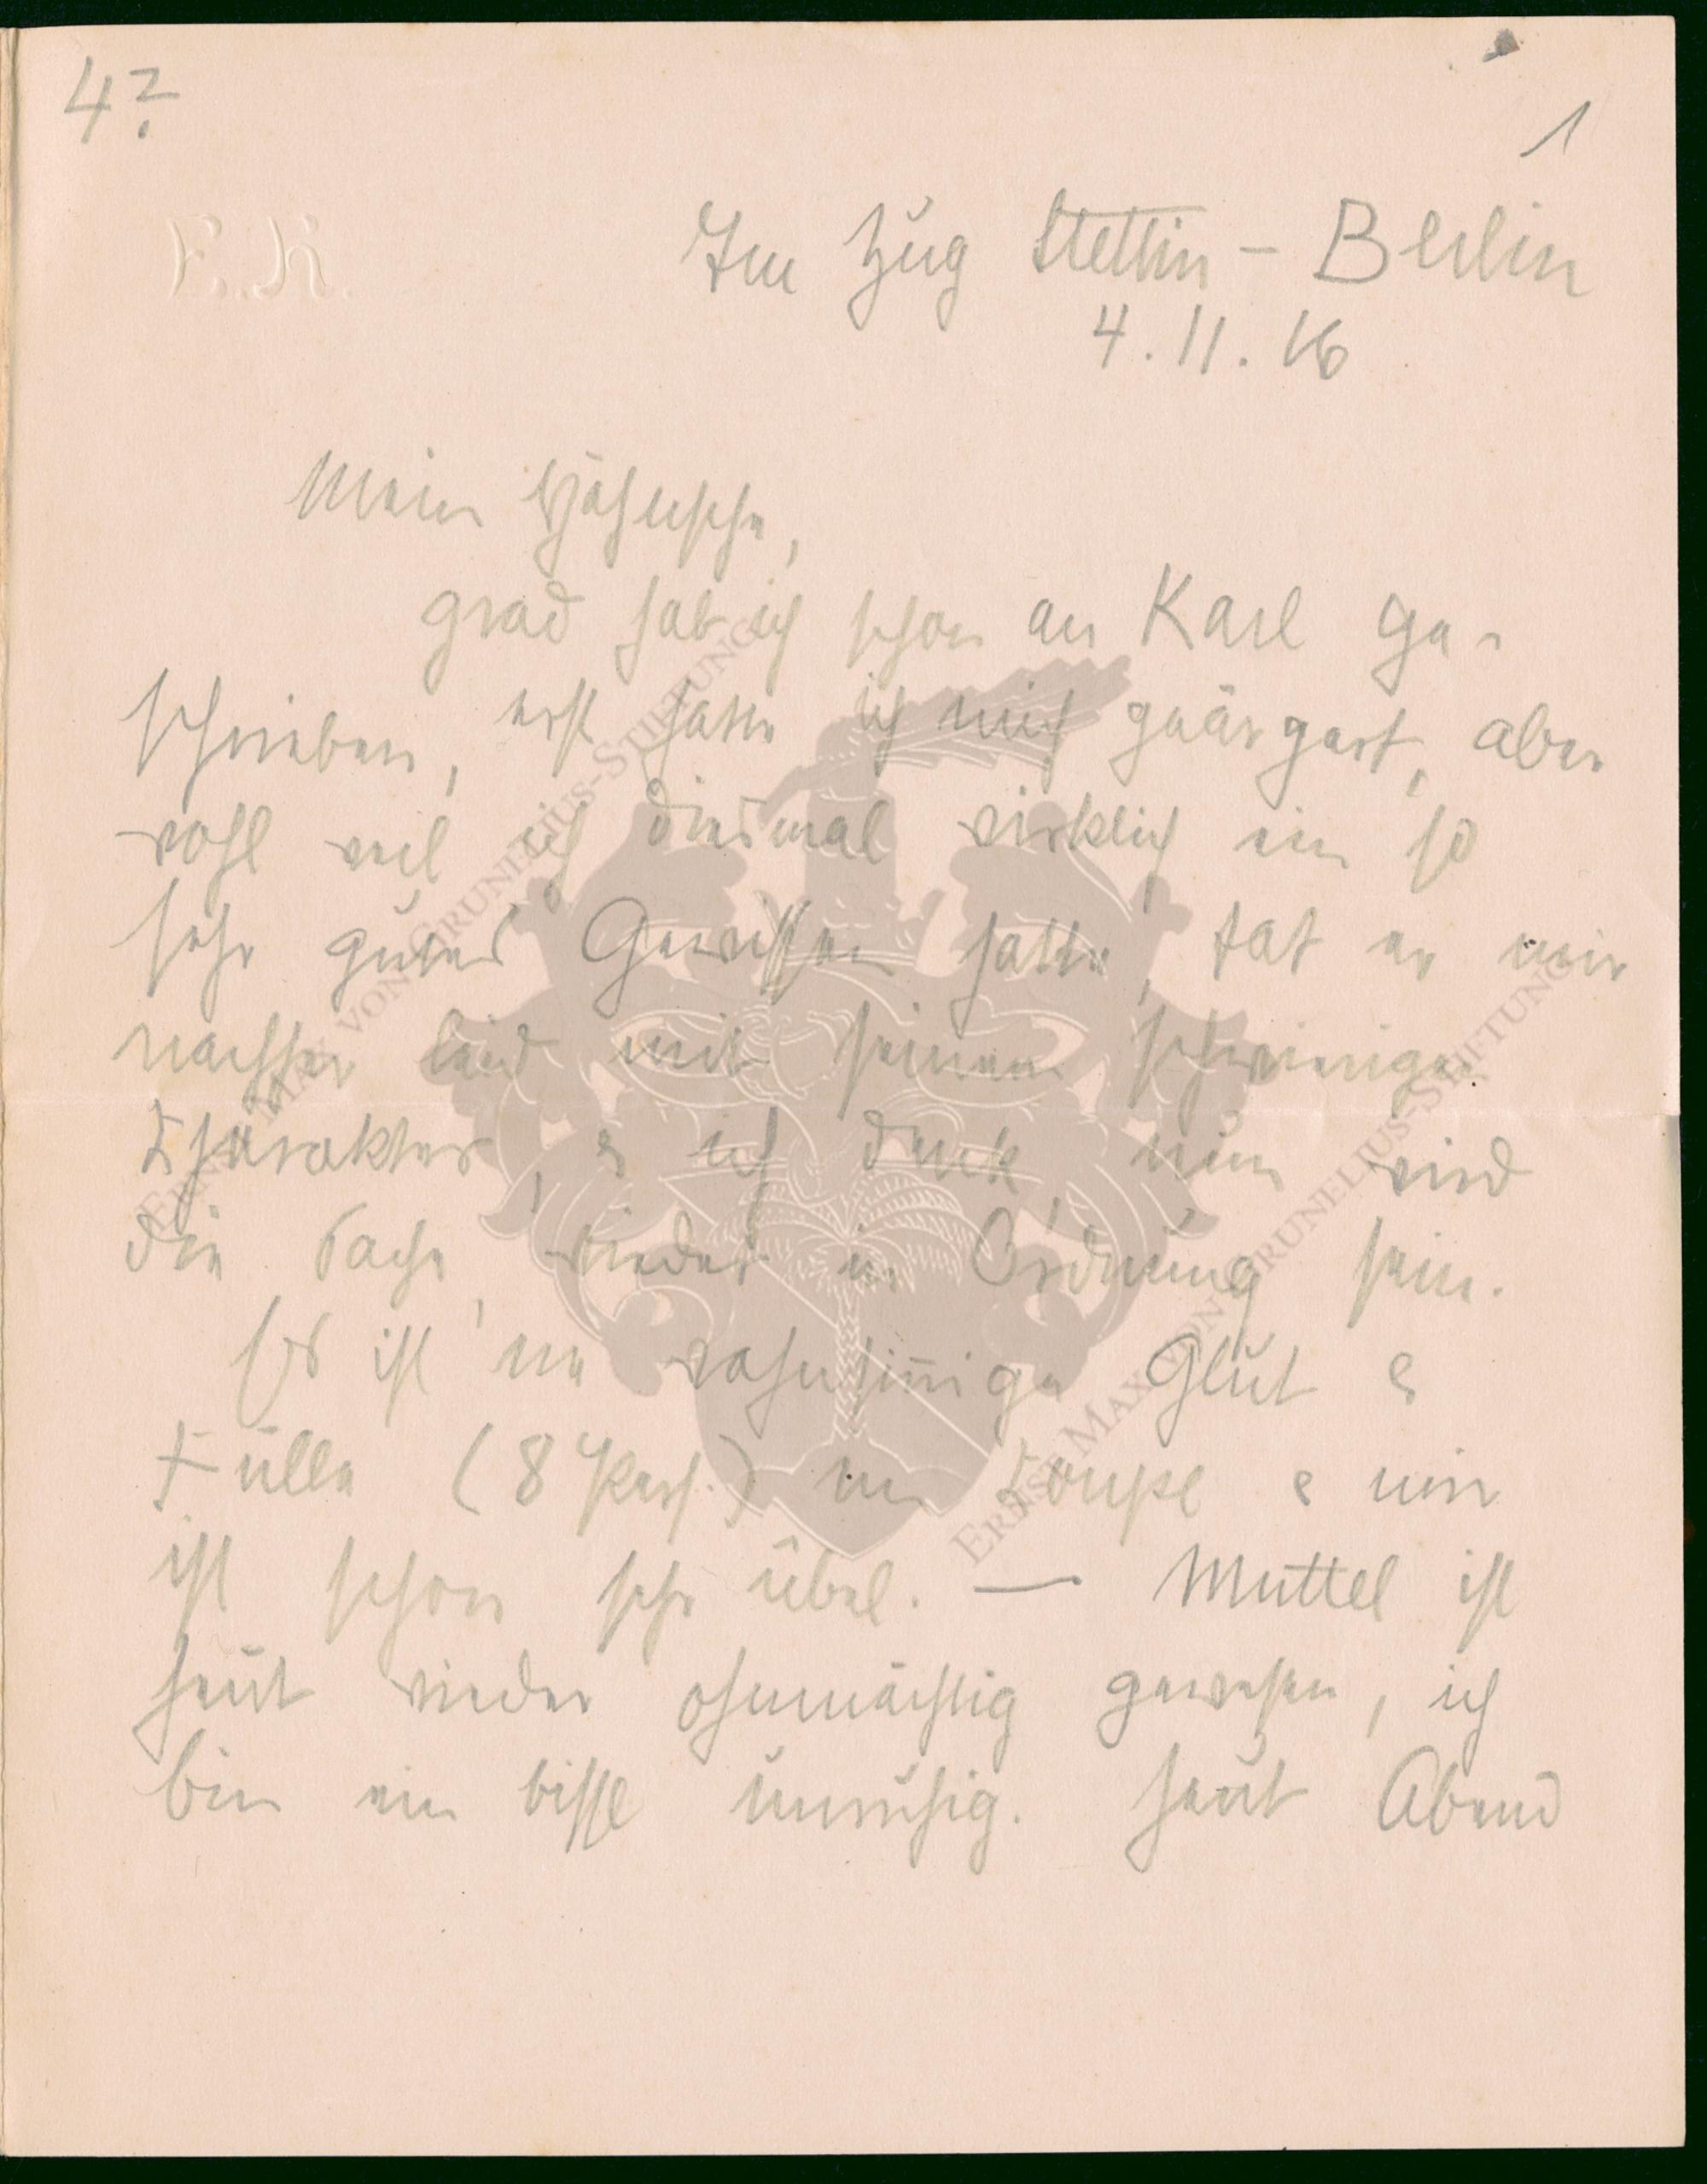 4?
1
E. K.
Im Zug Stettin – Berlin
4. 11. 16
Mein Hähnsche,
grad hab ich schon an Karl ge-
schrieben, erst hatte ich mich geärgert, aber
wohl weil ich diesmal wirklich ein so
sehr gutes Gewissen hatte, tat er mir
nachher leid mit seinem schwierigen
Charakter, & ich denk, nun wird
die Sache wieder in Ordnung sein.
Es ist 'ne wahnsinnige Glut &
Fülle (8 Pers.) im Coupé & mir
ist schon sehr übel. — Muttel ist
heut wieder ohnmächtig gewesen, ich
bin ein bissl unruhig. Heut Abend
ERNST MAX VON GRUNELIUS-STIFTUNG
ERNST MAX VON GRUNELIUS-STIFTUNG